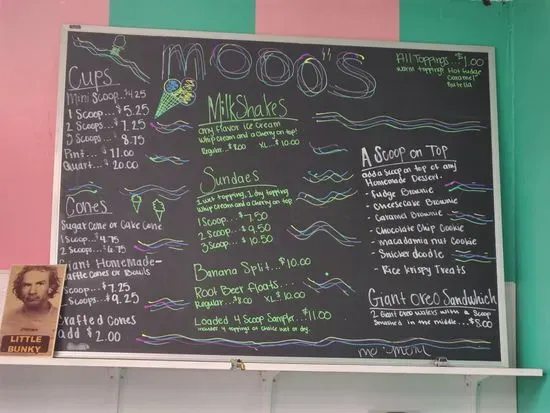 MOOO'S
All Toppings...$1.00
warm toppings Hot fudge
Caramel
Cups
Mini Scoop...$4.25
1 Scoop...$5.25
2 Scoops...$7.25
3 Scoops...$8.75
Pint...$11.00
Quart...$20.00
Cones
Sugar Cone or Cake Cone
1 Scoop...$4.75
2 Scoops...$6.75
Giant Homemade-
Waffle Cones or Bowls
Scoop...$7.25
Scoops...$9.25
Crafted Cones
add $2.00
MilkShakes
any Flavor Ice Cream
Whip cream and a Cherry on top!
Regular...$8.00 XL...$10.00
Sundaes
1 wet topping, 1 dry topping
Whip Cream and a Cherry on top
1 Scoop...$7.50
2 Scoop...$9.50
3 Scoop...$10.50
Banana Split...$10.00
Root Beer Floats...
Regular...$8.00 XL $10.00
Loaded 4 Scoop Sampler...$11.00
4 toppings of choice wet or dry.
A Scoop on Top
add a Scoop on top of any
Homemade Dessert.
- Fudge Brownie
- Cheesecake Brownie
- Caramel Brownie
- Chocolate Chip Cookie
- macadamia nut Cookie
- Snicker doodle
- Rice Krispy Treats
Giant Oreo Sandwhich
2 Giant Oreo wafers with a Scoop
Smashed in the middle...$8.00
LITTLE
BUNKY